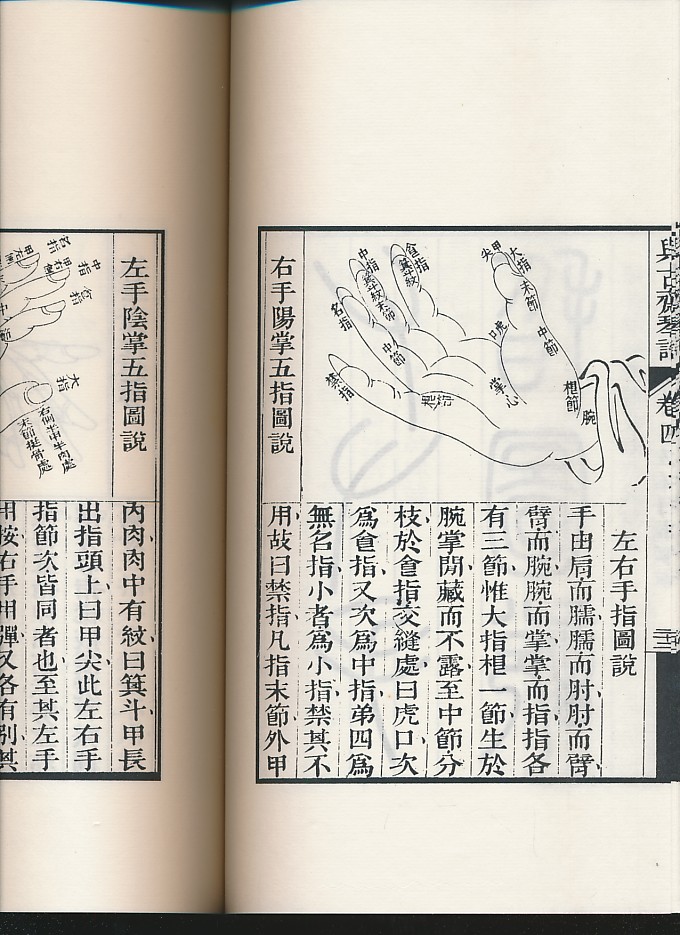 與古齋琴譜
卷四
左右手指圖說
手由肩而臑臑而肘肘而臂
臂而腕腕而掌掌而指指各
有三節惟大指根一節生於
腕掌閒藏而不露至中節分
枝於食指交縫處曰虎口次
為食指又次為中指弟四為
無名指小者為小指禁其不
用故曰禁指凡指末節外甲
大指
甲尖
末節
中節
根節
腕
虎口
掌心
食指
箕斗紋
中指
箕斗紋
末節
名指
中節
禁指
根節
右手陽掌五指圖說
左手陰掌五指圖說
內肉肉中有紋曰箕斗甲長
出指頭上曰甲尖此左右手
指節次皆同者也至其左手
用按右手用彈又各有別其
名指
中指
食指
大指